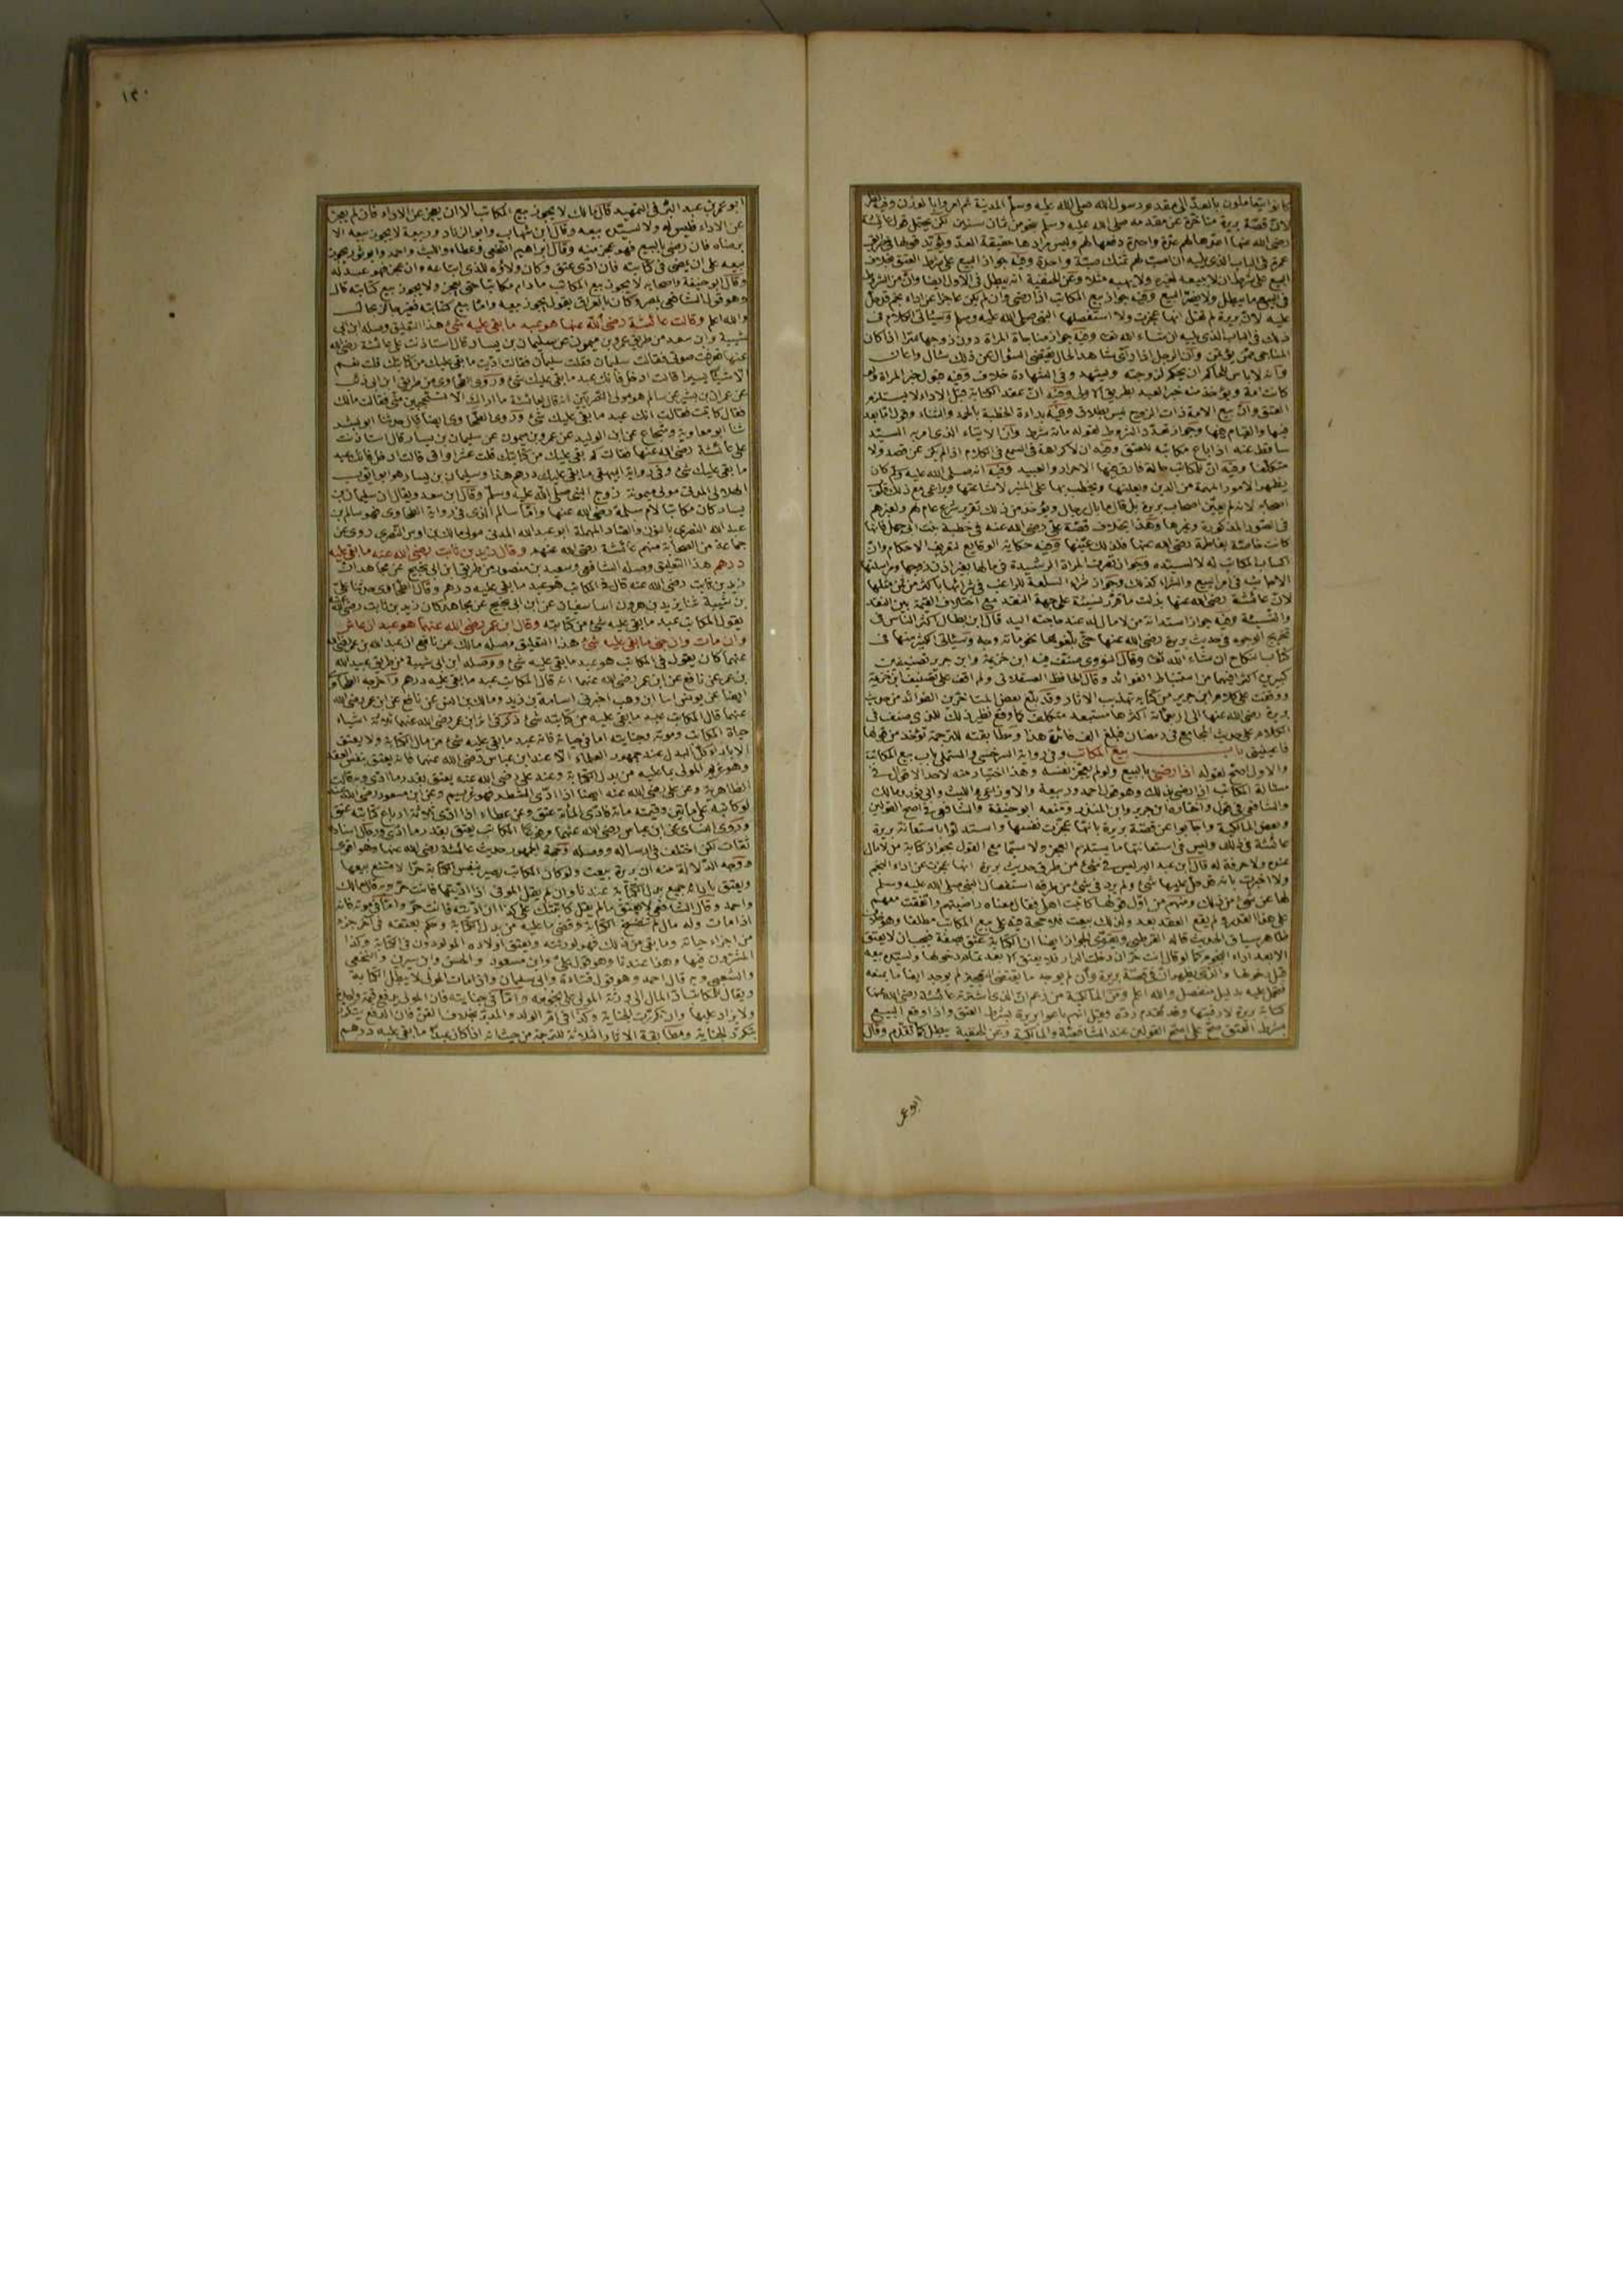 كانوا يتعاملون بالعدّ الى مقدم رسول الله صلى الله عليه وسلم المدينة ثم امروا بالوزن وفيه نظر
لانّ قصّة بريرة متأخرة عن مقدمه صلى الله عليه وسلم بنحو من ثمان سنين لكن يحتمل قول عائشة
رضى الله عنها اعدّها لهم عدّة واحدة دفعها لهم وليس مرادها حقيقة العدّ ويؤيّد قولها فى طريق
عمرة فى الباب الذى يليه ان اصبّ لهم ثمنك صبّة واحدة وفيه جواز البيع على شرط العتق بخلاف
البيع على شرط ان لا يبيعه لغيره ولا يهبه مثلا وعن الحنفية انه يبطل فى الاول ايضا وانّ من الشروط
فى البيع ما يبطل ولا يضرّ البيع وفيه جواز بيع المكاتب اذا رضى وان لم يكن عاجزا عن اداء نجم قد حلّ
عليه لانّ بريرة لم تقل انها عجزت ولا استفصلها النبى صلى الله عليه وسلم وسيأتى الكلام فى
ذلك فى الباب الذى يليه ان شاء الله تعالى وفيه جواز مناجاة المرأة دون زوجها سرّا اذا كان
المناجى ممّن يؤمن وانّ الرجل اذا رأى شاهد الحال يقتضى السؤال عن ذلك سأل واعان
وانه لا بأس للحاكم ان يحكم لزوجته ويشهد وفى الشهادة خلاف وفيه قبول خبر المرأة ولو
كانت امة ويؤخذ منه خبر العبد بطريق الاولى وفيه انّ عقد الكتابة قبل الاداء لا يستلزم
العتق وانّ بيع الامة ذات الزوج ليس بطلاق وفيه بداءة الخطبة بالحمد والثناء وقول اما بعد
فيها والقيام فيها وجواز تعدّد الشروط لقوله مائة شرط وانّ الايتاء الذى امر به السيّد
ساقط عنه اذا باع مكاتبه للعتق وفيه ان لا كراهة فى السجع فى الكلام اذا لم يكن عن قصد ولا
متكلّفا وفيه انّ للمكاتب حالة فارق فيها الاحرار والعبيد وفيه انه صلى الله عليه وسلم كان
يظهر الامور المهمة من الدين ويعلنها ويخطب بها على المنبر لاشاعتها ويراعى مع ذلك قلوب
اصحابه لانه لم يعيّن اصحاب بريرة بل قال ما بال رجال ويؤخذ من ذلك تقرير شرع عام لهم ولغيرهم
فى الصور المذكورة وغيرها وهذا بخلاف قصّة علىّ رضى الله عنه فى خطبة بنت ابى جهل فانها
كانت خاصّة بفاطمة رضى الله عنها فلذلك عيّنها وفيه حكاية الوقايع لتعريف الاحكام وانّ
اكساب المكاتب له لا لسيّده وجواز تصرف المرأة الرشيدة فى مالها بغير اذن زوجها ومراسلتها
الاجانب فى امر البيع والشراء كذلك وجواز شراء السلعة للراغب فى شرائها باكثر من ثمن مثلها
لانّ عائشة رضى الله عنها بذلت ما قرّر نسيئة على جهة النقد مع اختلاف القيمة بين النقد
والنسيئة وفيه جواز استدانة من لا مال له عند حاجته اليه قال ابن بطال اكثر الناس فى
تخريج الوجوه فى حديث بريرة رضى الله عنها حتى بلّغوها نحو مائة وجه وسيأتى اكثر منها فى
كتاب النكاح ان شاء الله تعالى وقال النووى صنّف فيه ابن خزيمة وابن جرير تصنيفين
كبيرين اكثرا فيهما من استنباط الفوائد وقال الحافظ العسقلانى ولم اقف على تصنيف ابن خزيمة
ووقفت على كلام ابن جرير من كتابه تهذيب الاثار وقد بلّغ بعض المتأخرين الفوائد من حديث
بريرة رضى الله عنها الى اربعمائة اكثرها مستبعد متكلف كما وقع نظير ذلك للذى صنف فى
الكلام على حديث المجامع فى رمضان فبلغ الف فائدة هذا ومطابقته للترجمة تؤخذ من قولها
فاعينينى باب بيع المكاتب وفى رواية السرخسى والمستملى باب بيع المكاتبة
والاول اصحّ لقوله اذا رضى بالبيع ولو لم يعجّز نفسه وهذا اختيار منه لاحد الاقوال فى
مسألة المكاتب اذا رضى بذلك وهو قول احمد وربيعة والاوزاعى والليث وابى ثور ومالك
والشافعى فى قول واختاره ابن جرير وابن المنذر ومنعه ابو حنيفة والشافعى فى اصح القولين
وبعض المالكية واجابوا عن قصّة بريرة بانّها عجّزت نفسها واستدلّوا باستعانة بريرة
عائشة فى ذلك وليس فى استعانتها ما يستلزم العجز ولا سيّما مع القول بجواز كتابة من لا مال
عنده ولا حرفة له قال ابن عبد البر ليس فى شىء من طرق حديث بريرة انها عجزت عن اداء النجم
ولا اخبرت بانه قد حلّ عليها شىء ولم يرد فى شىء من طرقه استفصال النبى صلى الله عليه وسلم
لها عن شىء من ذلك ومنهم من اوّل قولها كاتبت اهلى فقال معناه راضيتهم واتفقت معهم
على هذا القدر ولم يقع العقد بعد ولذلك بيعت فلا حجة فيه على بيع المكاتب مطلقا وهو خلاف
ظاهر سياق الحديث قاله القرطبى ويقوّى الجواز ايضا ان الكتابة عتق بصفة فيجب ان لا يعتق
الا بعد اداء النجوم كما لو قال انت حرّ ان دخلت الدار فلا يعتق الا بعد تمام دخولها ولسيّده بيعه
قبل دخولها
كتابة بريرة لا رقبتها وقد تقدم ردّه وقيل انهم باعوا بريرة بشرط العتق واذا وقع البيع
بشرط العتق صحّ على اصحّ القولين عند الشافعيّة والمالكية وعن الحنفية يبطل كما تقدم وقال
ابو عمر
١٣٠
ابو عمر بن عبد البرّ فى التمهيد قال مالك لا يجوز بيع المكاتب الا ان يعجز عن الاداء فان لم يعجز
عن الاداء فليس له ولا لسيّده بيعه وقال ابن شهاب وابو الزناد وربيعة لا يجوز بيعه الا
برضاه فان رضى بالبيع فهو عجز منه وقال ابراهيم النخعى وعطاء والليث واحمد وابو ثور يجوز
بيعه على ان يمضى فى كتابته فان ادّى عتق وكان ولاؤه للذى ابتاعه وان عجز فهو عبد له
وقال ابو حنيفة واصحابه لا يجوز بيع المكاتب ما دام مكاتبا حتى يعجز ولا يجوز بيع كتابته قال
وهو قول الشافعى بمصر وكان بالعراق يقول يجوز بيعه وامّا بيع كتابته فغير جائز بحال
والله اعلم وقالت عائشة رضى الله عنها هو عبد ما بقى عليه شىء هذا التعليق وصله ابن ابى
شيبة وابن سعد من طريق عمرو بن ميمون عن سليمان بن يسار قال استأذنت على عائشة رضى الله
عنها فعرفت صوتى فقالت سليمان فقلت سليمان فقالت ادّيت ما بقى عليك من كتابتك قلت نعم
الا شيئا يسيرا قالت ادخل فانك عبد ما بقى عليك شىء وروى الطحاوى من طريق ابن ابى ذئب
عن عمران بن بشير عن سالم هو مولى النصريّين انه قال لعائشة ما اراك الا تستحيين منّى فقالت مالك
فقال كاتبت فقالت انك عبد ما بقى عليك شىء وروى الطحاوى ايضا قال حدثنا ابو بشر
ثنا ابو معاوية وشجاع عن ابن الوليد عن عمرو بن ميمون عن سليمان بن يسار قال استأذنت
على عائشة رضى الله عنها فقالت كم بقى عليك من كتابتك قلت عشر اواقى قالت ادخل فانك عبد
ما بقى عليك شىء وفى رواية البيهقى ما بقى عليك درهم هذا وسليمان بن يسار هو ابو ايوب
الهلالى المدنى مولى ميمونة زوج النبى صلى الله عليه وسلم وقال ابن سعد ويقال ان سليمان بن
يسار كان مكاتبا لام سلمة رضى الله عنها وامّا سالم الذى فى رواية الطحاوى فهو سالم بن
عبد الله النصرى بالنون والصاد المهملة ابو عبد الله المدنى مولى مالك بن اوس النصرى روى عن
جماعة من الصحابة منهم عائشة رضى الله عنهم وقال زيد بن ثابت رضى الله عنه ما بقى عليه
درهم هذا التعليق وصله الشافعى وسعيد بن منصور من طريق ابن ابى نجيح عن مجاهد انّ
زيد بن ثابت رضى الله عنه قال فى المكاتب هو عبد ما بقى عليه درهم وقال الطحاوى حدثنا على
بن شيبة ثنا يزيد بن هرون انبأ سفيان عن ابن ابى نجيح عن مجاهد كان زيد بن ثابت رضى الله عنه
يقول المكاتب عبد ما بقى عليه شىء من كتابته وقال ابن عمر رضى الله عنهما هو عبد ان عاش
وان مات وان جنى ما بقى عليه شىء هذا التعليق وصله مالك عن نافع ان عبد الله بن عمر رضى الله
عنهما كان يقول فى المكاتب هو عبد ما بقى عليه شىء ووصله ابن ابى شيبة من طريق عبيد الله
بن عمر عن نافع عن ابن عمر رضى الله عنهما انه قال المكاتب عبد ما بقى عليه درهم واخرجه الطحاوى
ايضا عن يونس انبأ ابن وهب اخبرنى اسامة بن زيد ومالك بن انس عن نافع عن ابن عمر رضى الله
عنهما قال المكاتب عبد ما بقى عليه من كتابته شىء ذكر فى اثر ابن عمر رضى الله عنهما ثلاثة اشياء
حياة المكاتب وموته وجنايته اما فى حياته فانه عبد ما بقى عليه شىء من مال الكتابة ولا يعتق
الا باداء كل البدل عند جمهور العلماء الا عند ابن عباس رضى الله عنهما فانه يعتق بنفس العقد
وهو غريم المولى بما عليه من بدل الكتابة وعند على رضى الله عنه يعتق بقدر ما ادى وبه قالت
الظاهرية وعن على رضى الله عنه ايضا اذا ادّى الشطر فهو غريم وعن ابن مسعود رضى الله عنه
لو كاتبه على مائتين وقيمته مائة فادّى المائة عتق وعن عطاء اذا ادّى ثلاثة ارباع كتابته عتق
وروى النسائى عن ابن عباس رضى الله عنهما مرفوعا المكاتب يعتق بقدر ما ادّى ورجال اسناده
ثقات لكن اختلف فى ارساله ووصله وحجة الجمهور حديث عائشة رضى الله عنها وهو اقوى
ووجه الدلالة منه ان بريرة بيعت ولو كان المكاتب يصير بنفس الكتابة حرّا لامتنع بيعها
ويعتق باداء جميع بدل الكتابة عندنا وان لم يقل المولى اذا ادّيتها فانت حرّ وبه قال مالك
واحمد وقال الشافعى لا يعتق ما لم يقل كاتبتك على كذا ان ادّيته فانت حرّ وامّا فى موته فانه
اذا مات وله مال لم تنفسخ الكتابة وقضى ما عليه من بدل الكتابة وحكم بعتقه فى آخر جزء
من اجزاء حياته وما بقى من ذلك فهو لورثته ويعتق اولاده المولودون فى الكتابة وكذا
المشترون فيها وهذا عندنا وهو قول علىّ وابن مسعود والحسن وابن سيرين والنخعى
والشعبى وبه قال احمد وهو قول قتادة وابى سليمان واذا مات المولى لا يبطل الكتابة
ويقال للمكاتب ادّ المال الى ورثة المولى على نجومه وامّا فى جنايته فان المولى يدفع قيمة واحدة
ولا يزاد عليها وان تكررت الجناية وكذا فى امّ الولد والمدبّر بخلاف القنّ فان الدفع يتكرّر
بتكرّر الجناية ومطابقة الاثار الثلاثة للترجمة من حيث انه اذا كان عبدا ما بقى عليه درهم